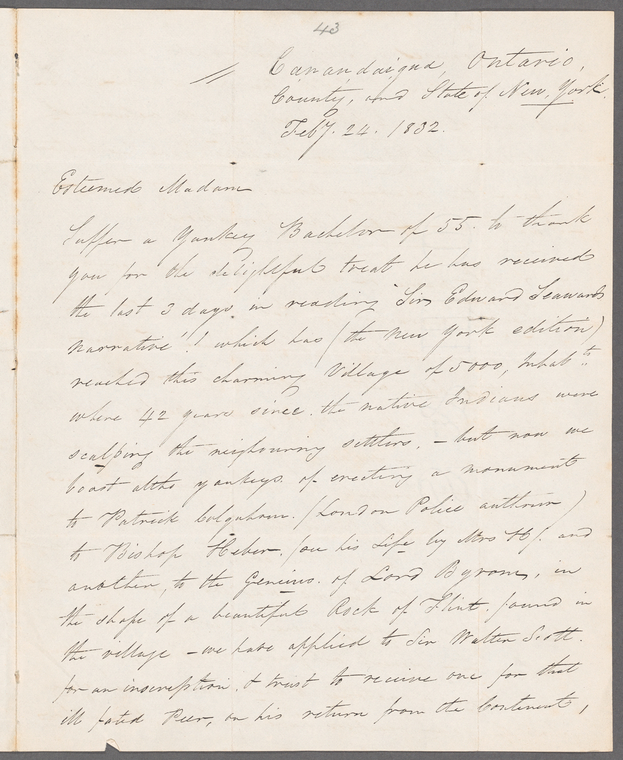 43
Canandaigua, Ontario,
County, and State of New, York.
Feby. 24. 1832.
Esteemed Madam
Suffer a Yankey Bachelor of 55. to thank
you for the delightful treat he has received
the last 3 days in reading "Sir Edward Seawards
narrative"!! which has (the New York edition)
reached this charming Village of 5000, Inhabts.
where 42 years since. the native Indians were
scalping the neighouring settlers. - but now we
boast altho yankeys. of erecting a monument
to Patrick Colquhoun. (London Police authour)
to Bishop Heber. (on his Life by Mrs H). and
another, to the Geneius. of Lord Byron, in
the shape of a beautiful Rock of Flint found in
the village - we have applied to Sir Walter Scott.
for an inscription. & trust to receive one for that
ill fated Peer, on his return from the Continent,